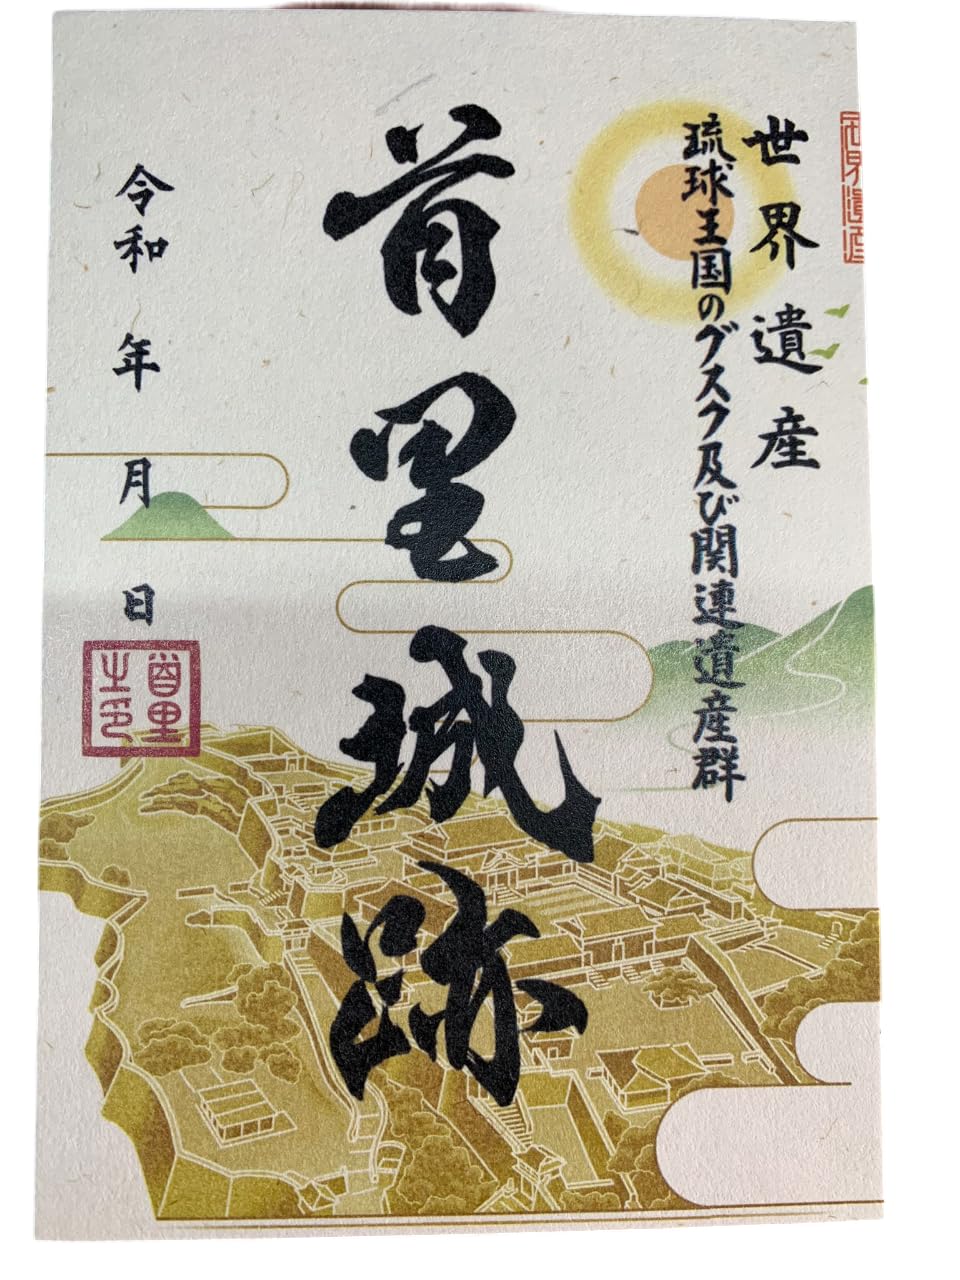 世界遺産
世界遺産
琉球王国のグスク及び関連遺産群
首里城跡
令和 年 月 日
首里
之印